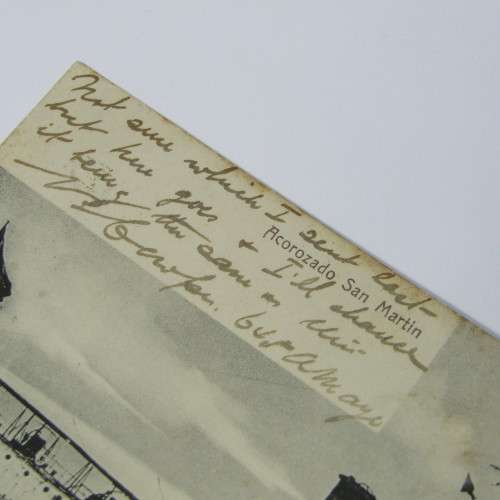 Not sure which I sent last
but here goes & I'll chance
it being the same as this
Acorozado San Martin